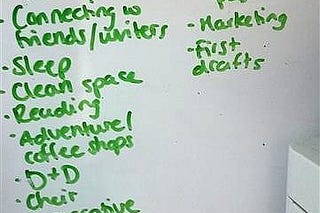 - Connecting w
friends/writers
- Sleep
- Clean space
- Reading
- Adventure/
coffee shops
- D+D
- Chair
- Marketing
- First
drafts